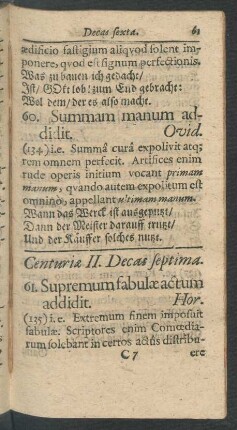 Decas sexta. 61
ædificio fastigium aliqvod solent im-
ponere, qvod est signum perfectionis.
Was zu bauen ich gedacht/
Ist/ GOtt lob! zum End gebracht:
Wol dem/ der es also macht.
60. Summam manum ad-
didit. Ovid.
(134) i. e. Summâ curâ expolivit atq;
rem omnem perfecit. Artifices enim
rude operis initium vocant primam
manum, qvando autem expolitum est
omnino, appellant ultimam manum.
Wann das Werck ist ausgeputzt/
Dann der Meister darauff trutzt/
Und der Käuffer solches nutzt.
Centuriæ II. Decas septima.
61. Supremum fabulæ actum
addidit. Hor.
(135) i. e. Extremum finem imposuit
fabulæ. Scriptores enim Comœdia-
rum solebant in certos actus distribu-
C 7 ere